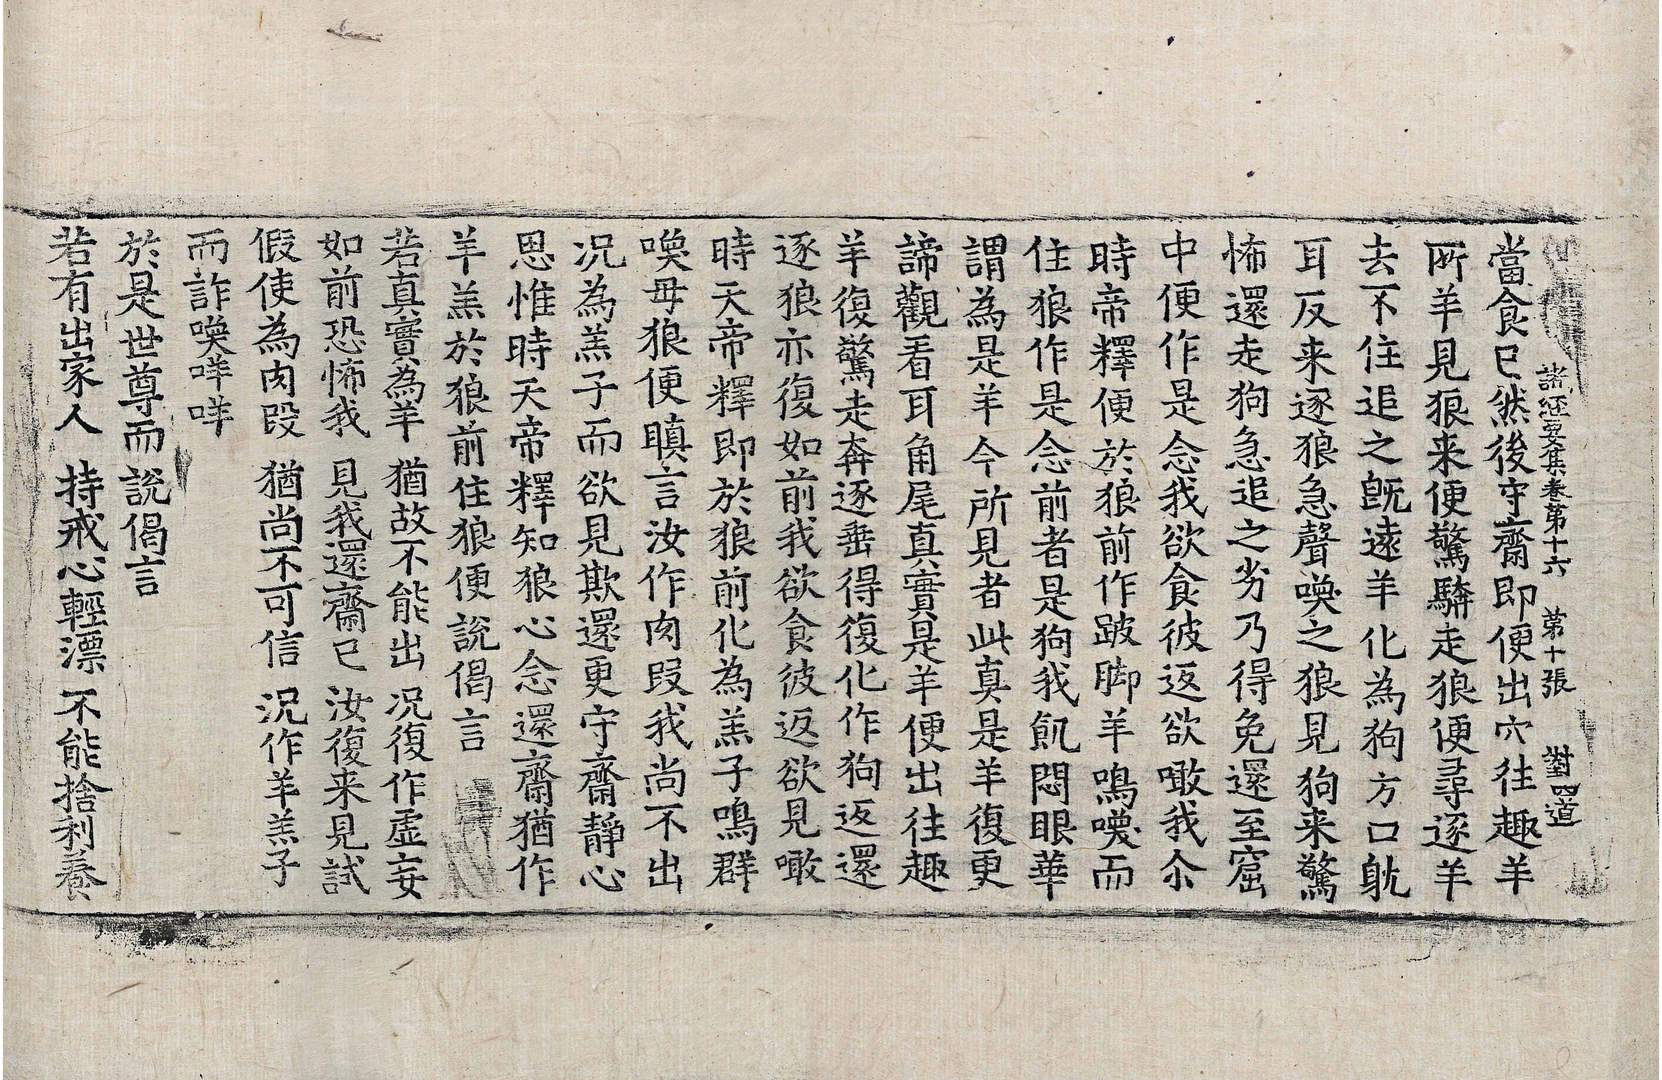 諸經要集卷第十六　第十張　對四道
當食已然後守齋即便出穴往趣羊
所羊見狼来便驚驎走狼便尋逐羊
去不住追之旣遠羊化為狗方口躭
耳反来逐狼急聲喚之狼見狗来驚
怖還走狗急追之劣乃得免還至窟
中便作是念我欲食彼返欲噉我尒
時帝釋便於狼前作跛脚羊鳴喚而
住狼作是念前者是狗我飢悶眼華
謂為是羊今所見者此真是羊復更
諦觀看耳角尾真實是羊便出往趣
羊復驚走奔逐垂得復化作狗返還
逐狼亦復如前我欲食彼返欲見噉
時天帝釋即於狼前化為羔子鳴群
喚母狼便瞋言汝作肉段我尚不出
況為羔子而欲見欺還更守齋靜心
思惟時天帝釋知狼心念還齋猶作
羊羔於狼前住狼便說偈言
若真實為羊　猶故不能出　况復作虛妄
如前恐怖我　見我還齋已　汝復来見試
假使為肉段　猶尚不可信　况作羊羔子
而詐喚咩咩
於是世尊而說偈言
若有出家人　持戒心輕漂　不能捨利養